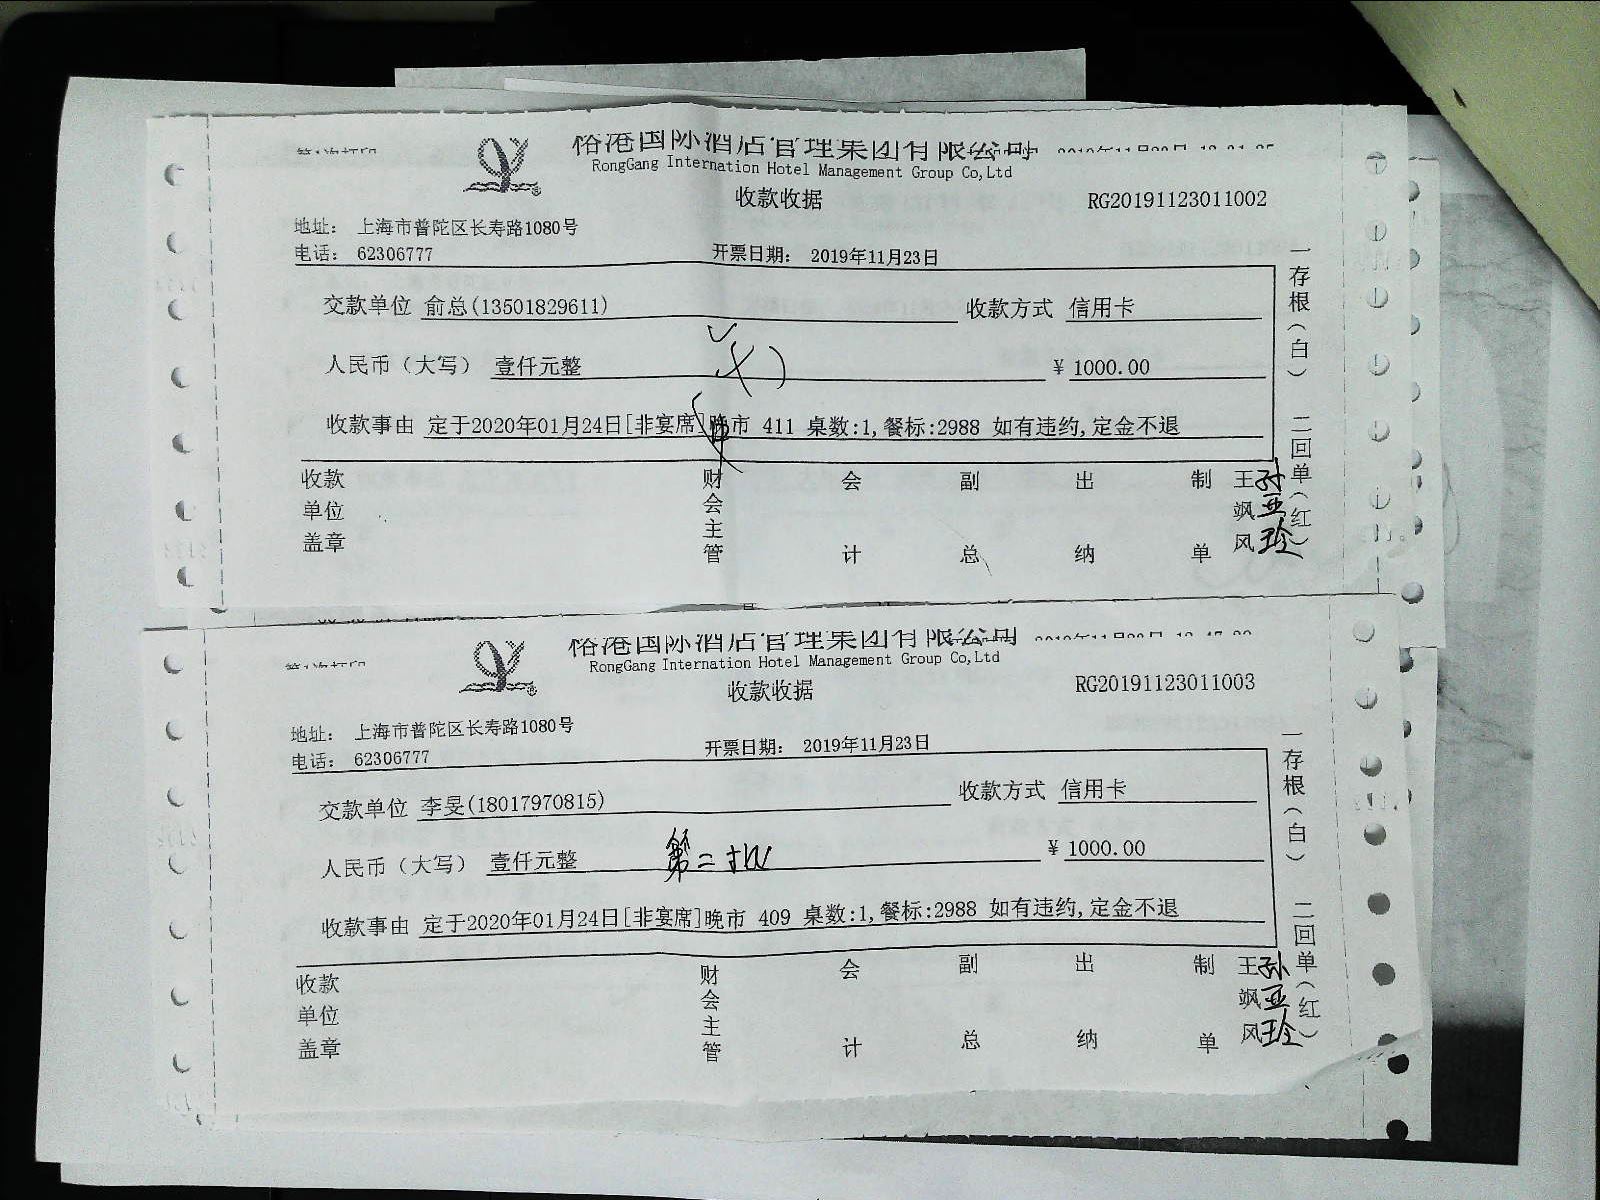 裕港国际酒店管理集团有限公司
RongGang International Hotel Management Group Co,Ltd
收款收据 RG20191123011002
地址： 上海市普陀区长寿路1080号
电话： 62306777 开票日期： 2019年11月23日
交款单位 俞总(13501829611) 收款方式 信用卡
人民币（大写） 壹仟元整 ¥ 1000.00
收款事由 定于2020年01月24日[非宴席]晚市 411 桌数:1,餐标:2988 如有违约,定金不退
收款单位盖章 财会主管 会计 副总 出纳 制单 王飒风 孙亚玲
一存根（白） 二回单（红）
裕港国际酒店管理集团有限公司
RongGang International Hotel Management Group Co,Ltd
收款收据 RG20191123011003
地址： 上海市普陀区长寿路1080号
电话： 62306777 开票日期： 2019年11月23日
交款单位 李旻(18017970815) 收款方式 信用卡
人民币（大写） 壹仟元整 第二批 ¥ 1000.00
收款事由 定于2020年01月24日[非宴席]晚市 409 桌数:1,餐标:2988 如有违约,定金不退
收款单位盖章 财会主管 会计 副总 出纳 制单 王飒风 孙亚玲
一存根（白） 二回单（红）